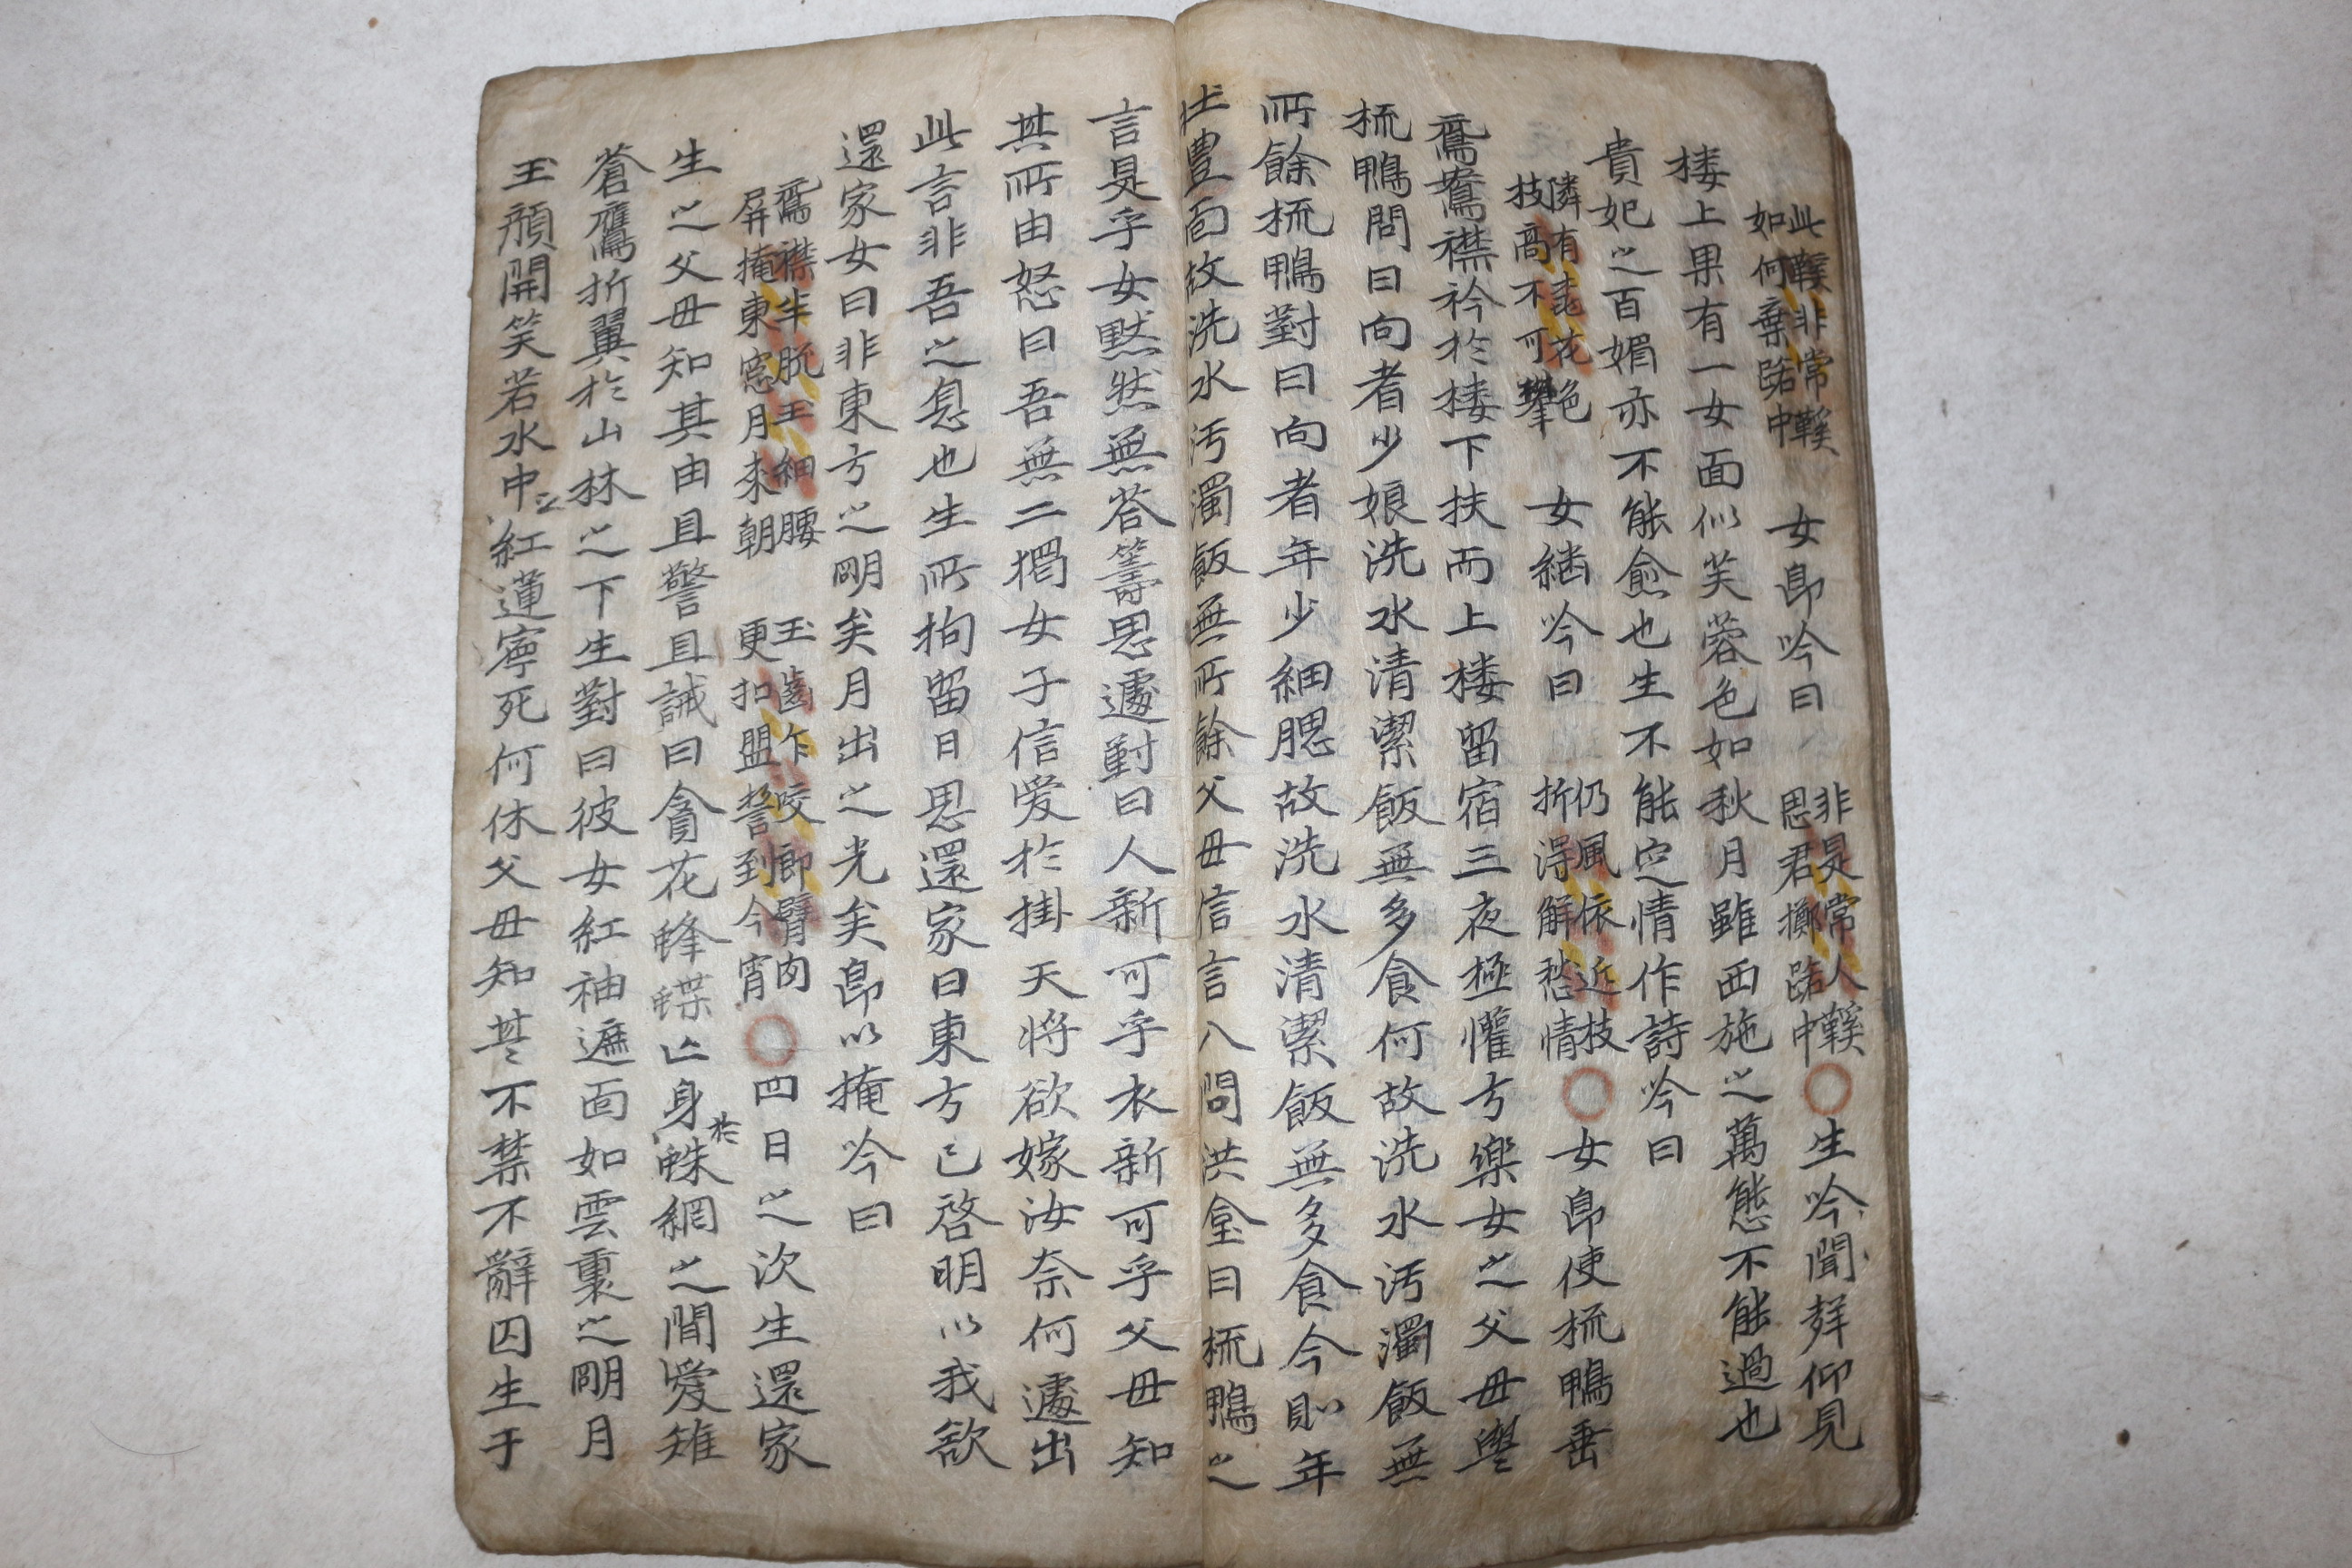 此鞵非常鞵
如何棄路中
女郎吟曰
非是常人鞵
思君擲路中
生吟聞聲仰見
楼上果有一女面似芙蓉色如秋月雖西施之萬態不能過也
貴妃之百媚亦不能愈也生不能定情作詩吟曰
隣有桃花色
枝高不可攀
女継吟曰
仍風依近技
折得解愁情
女郎使梳鴨垂
鴛鴦襟衿於楼下扶而上楼留宿三夜極懽方樂女之父母與
梳鴨問曰向者少娘洗水清潔飯無多食何故洗水汚濁飯無
所餘梳鴨對曰向者年少細腮故洗水清潔飯無多食今則年
壮豊面故洗水汚濁飯無所餘父母信言八問洪金曰梳鴨之
言是乎女默然無答籌思遽對曰人新可乎衣新可乎父母知
其所由怒曰吾無二獨女子信愛於掛天将欲嫁汝奈何遽出
此言非吾之息也生所拘留日思還家曰東方已啓明以我欲
還家女曰非東方之明矣月出之光矣郎以掩吟曰
鴛襟半脱玉細腰
屏掩東窓月未朝
玉齒乍咬郎臂肉
更扣盟誓到今宵
四日之次生還家
生之父母知其由且警且誡曰貪花蜂蝶亡身於蛛網之間愛雉
蒼鷹折翼於山林之下生對曰彼女紅袖遮面如雲裏之明月
玉顔開笑若水中之紅蓮寧死何休父母知其不禁不辭因生于